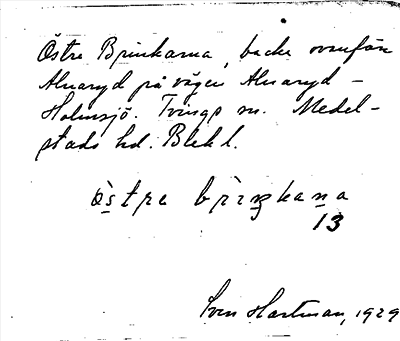 Östra Brinkarna, backe ovanför
Alnaryd på vägen Alnaryd –
Holmsjö. Tvings sn. Medel-
stads hd. Blekl.
östra briŋkana
13
Sven Hartman, 1929